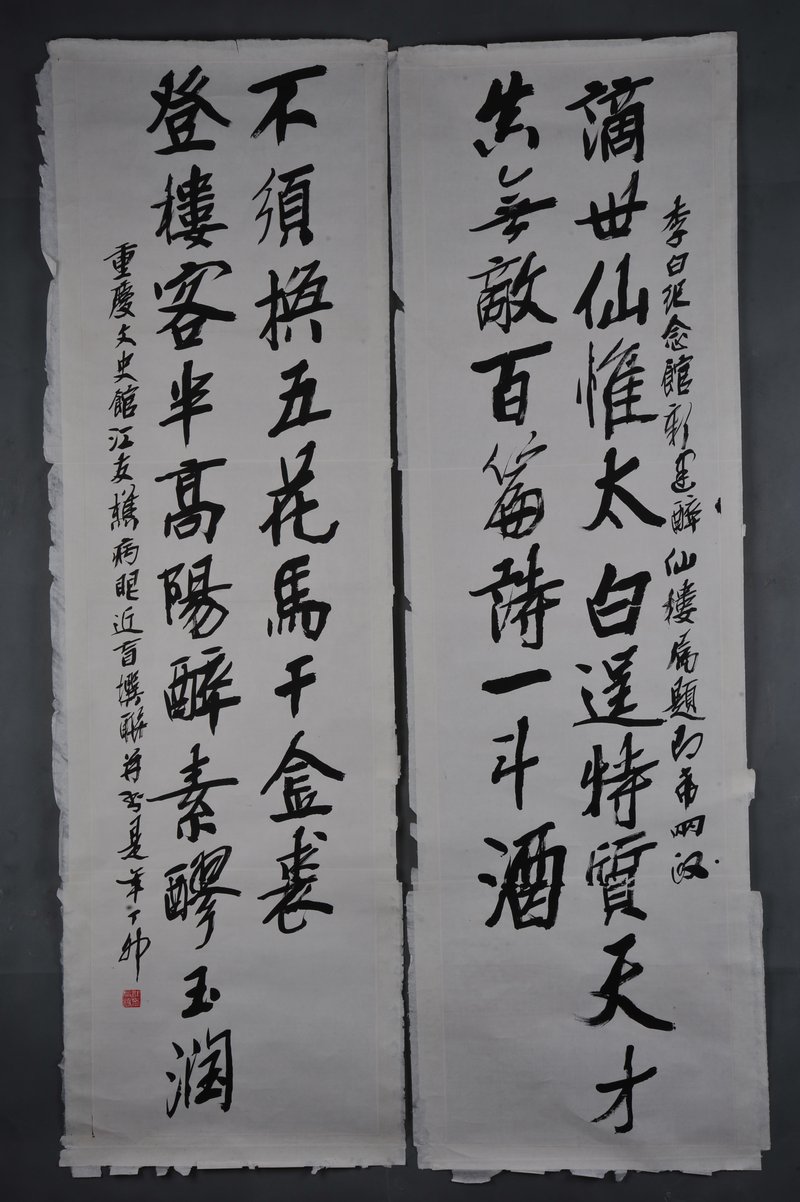 李白紀念館新建醉仙樓屬題即希哂政
謫世仙惟太白逞特質天才
無敵百篇詩一斗酒
登樓客半高陽醉素醪玉潤
不須換五花馬千金裘
重慶文史館江友樵病眼近盲撰聯并書是年丁卯